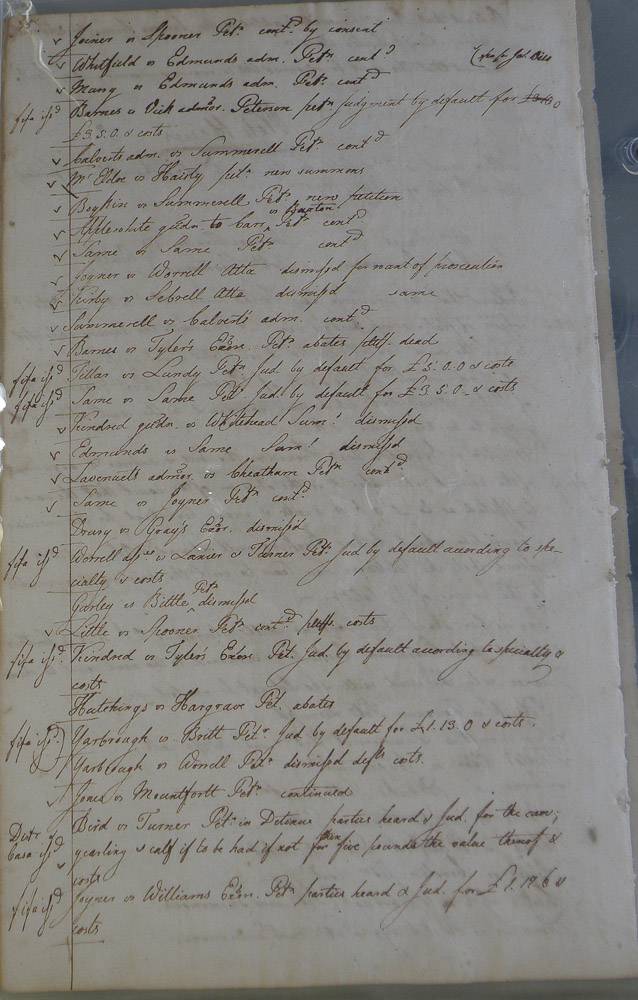 ✓ Joiner vs Spooner Petn. contd. by consent
✓ Whitfield vs Edmunds adm. Petn. contd
✓ Mang vs Edmunds adm. Petn. contd
fifa issd Barnes vs Vick admor. Peterson petn Judgment by default for
£3.5.0. & costs
✓ Calverts adm. vs Summerell Petn contd
✓ Mc. vs Hasty petn new summons
✓ Boykin vs Summerell Petn. new petition
✓ Applewhite gudn. to Carr vs Petn. contd
✓ Same vs Same Petn contd
✓ Joyner vs Worrell Atta dismissd for want of prosecution
✓ Kirby vs Sebrell Atta dismissd same
✓ Summerell vs Calverts adm. contd
✓ Barnes vs Tyler's Exor. Petn. abates pltff. dead
fifa issd Tillar vs Lundy Petn Jud by default for £5.0.0 & costs
fifa issd Same vs Same Petn Jud. by default for £3.5.0. & costs
✓ Kindred gudn. vs Whitehead Sums. dismissd
✓ Edmunds vs Same Sums. dismissd
✓ admor. vs Cheatham Petn contd
✓ Same vs Joyner Petn contd
Drury vs Gray's Exor. dismissd
fifa issd Worrell assee vs Lanier & Turner Petn. Jud by default according to spe-
cialty & costs
Gurley vs Bittle Petn. dismissd
✓ Little vs Spooner Petn contd pltffs. costs
fifa issd. Kindred vs Tyler's Exor. Pet. Jud. by default according to specialty &
costs
Hutchings vs Hargrave Pet. abates
fifa issd. Yarbrough vs Britt Petn. Jud by default for £1.13.0 & costs
Yarbrough vs Worrell Petn. dismissd defts costs.
✓ Jones vs Mountforth Petn. continued
Distr & Bird vs Turner Petn. in Detinue parties heard & Jud. for the cow,
Casa issd yearling & calf if to be had if not then for five pounds the value thereof &
✓ costs
fifa issd Joyner vs Williams Exor. Petn parties heard & Jud. for £1.19.6 &
costs